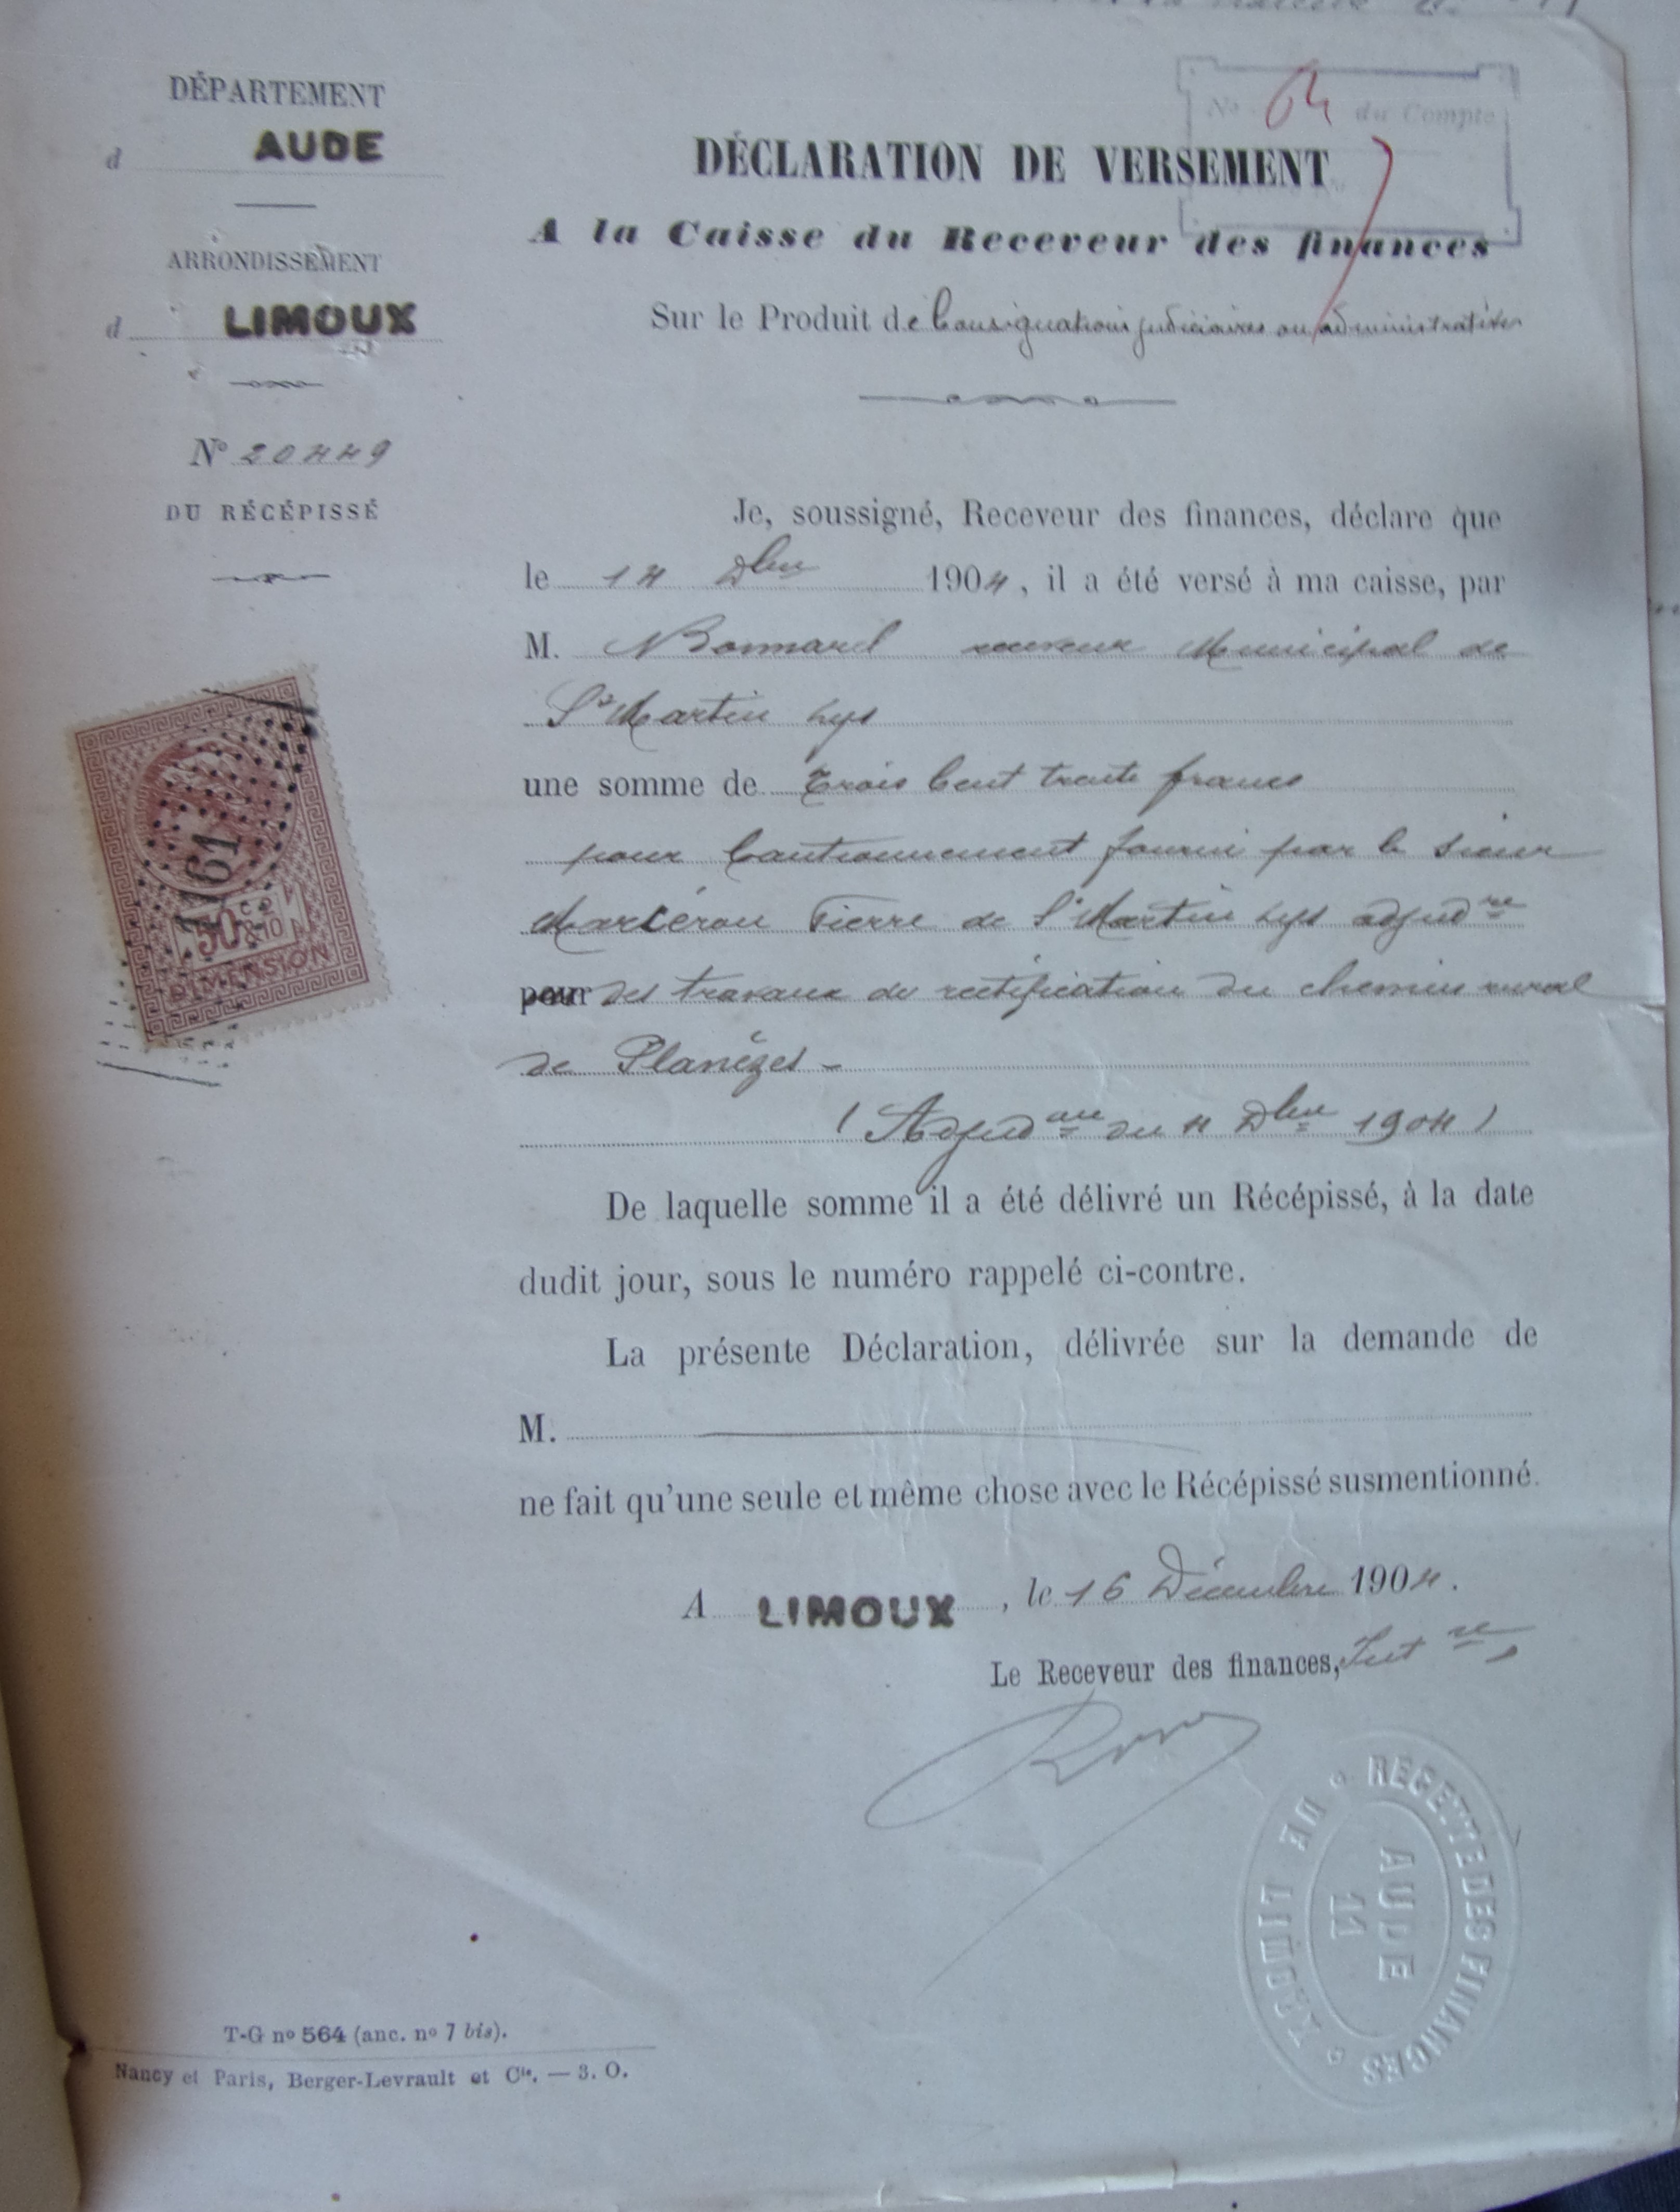 DÉPARTEMENT
d AUDE
ARRONDISSEMENT
d LIMOUX
N° 20449
DU RÉCÉPISSÉ
1161
50 c & 2/10
DIMENSION
N° 64 du Compte
DÉCLARATION DE VERSEMENT
A la Caisse du Receveur des finances
Sur le Produit de Consignations judiciaires ou administratives
Je, soussigné, Receveur des finances, déclare que
le 14 Xbre 1904, il a été versé à ma caisse, par
M. Bonnard receveur Municipal de
St Martin Lys
une somme de Trois Cent trente francs
pour Cautionnement fourni par le sieur
Marcérou Pierre de St Martin Lys adjudre
pour des travaux de rectification du chemin rural
de Planèzes -
(Adjudon du 4 Xbre 1904)
De laquelle somme il a été délivré un Récépissé, à la date
dudit jour, sous le numéro rappelé ci-contre.
La présente Déclaration, délivrée sur la demande de
M.
ne fait qu'une seule et même chose avec le Récépissé susmentionné.
A LIMOUX, le 16 Décembre 1904.
Le Receveur des finances,
RECETTE DES FINANCES
DE LIMOUX
AUDE
11
T-G n° 564 (anc. n° 7 bis).
Nancy et Paris, Berger-Levrault et Cie. — 3. O.